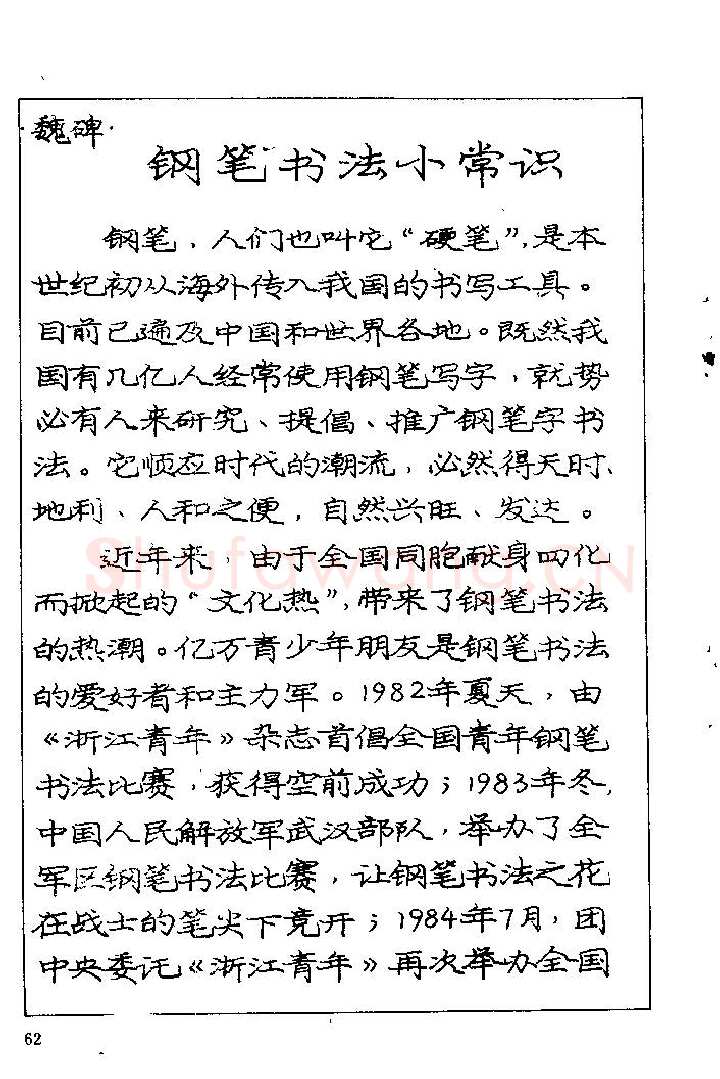 ·魏碑·
钢笔书法小常识
钢笔，人们也叫它“硬笔”，是本
世纪初从海外传入我国的书写工具。
目前已遍及中国和世界各地。既然我
国有几亿人经常使用钢笔写字，就势
必有人来研究、提倡、推广钢笔字书
法。它顺应时代的潮流，必然得天时、
地利、人和之便，自然兴旺、发达。
近年来，由于全国同胞献身四化
而掀起的“文化热”，带来了钢笔书法
的热潮。亿万青少年朋友是钢笔书法
的爱好者和主力军。1982年夏天，由
《浙江青年》杂志首倡全国青年钢笔
书法比赛，获得空前成功；1983年冬，
中国人民解放军武汉部队，举办了全
军区钢笔书法比赛，让钢笔书法之花
在战士的笔尖下竞开；1984年7月，团
中央委讬《浙江青年》再次举办全国
62
Shufawang.CN